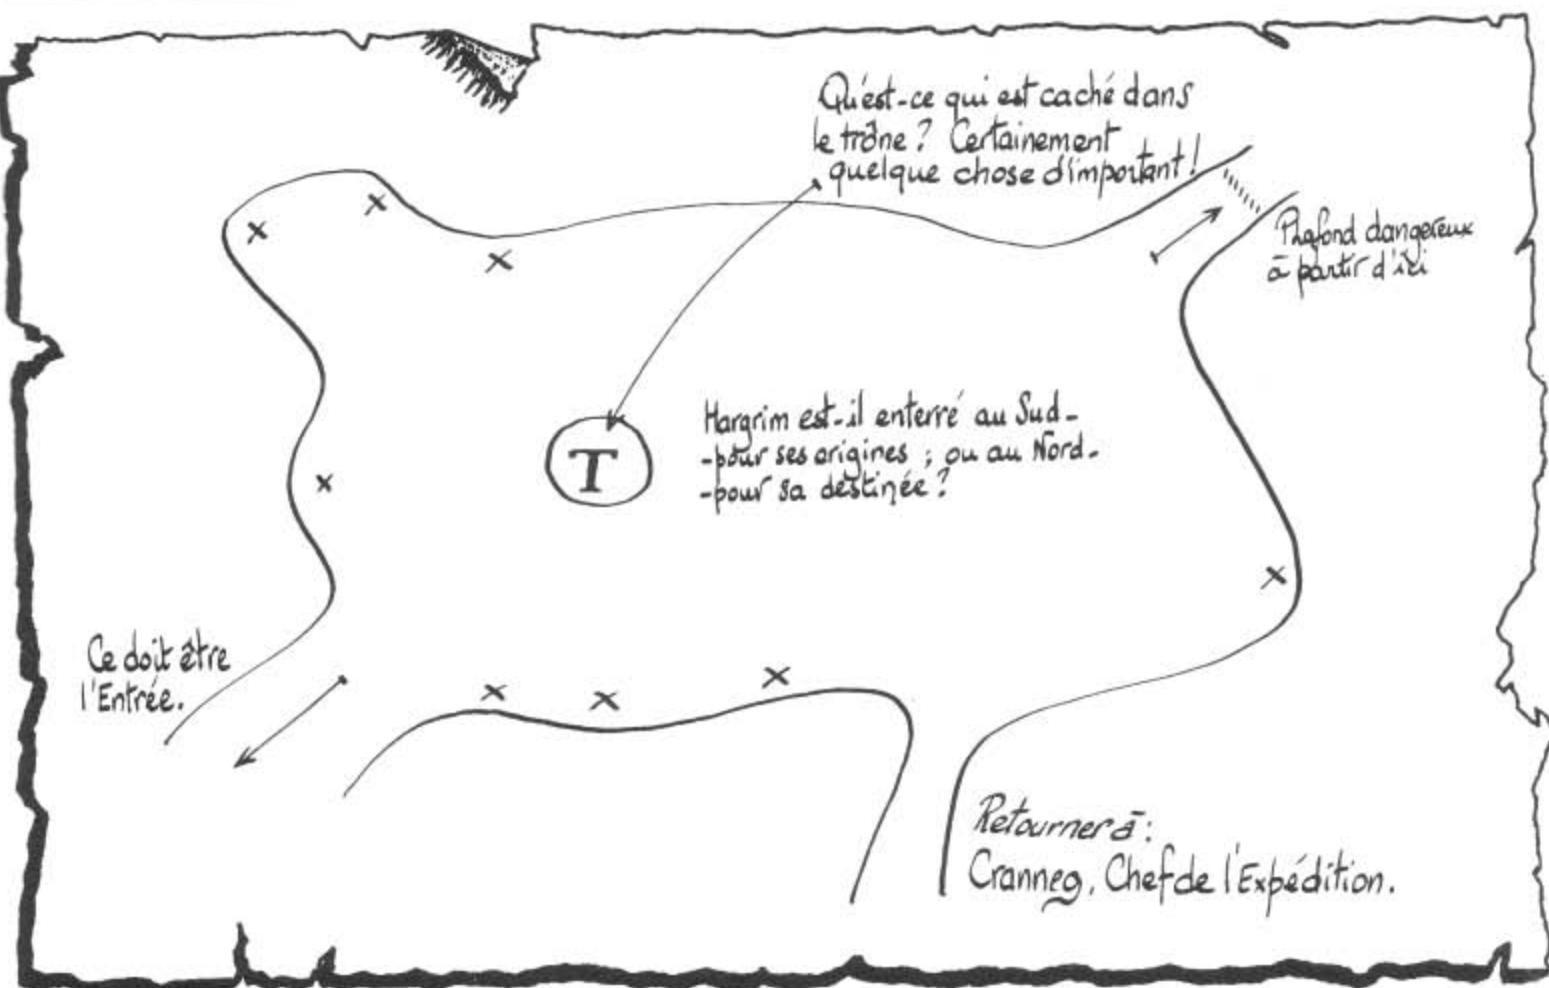 Qu'est-ce qui est caché dans
le trône ? Certainement
quelque chose d'important !
Plafond dangereux
à partir d'ici
Hargrim est-il enterré au Sud-
-pour ses origines ; ou au Nord-
-pour sa destinée ?
T
Ce doit être
l'Entrée.
Retourner à :
Cranneg, Chef de l'Expédition.